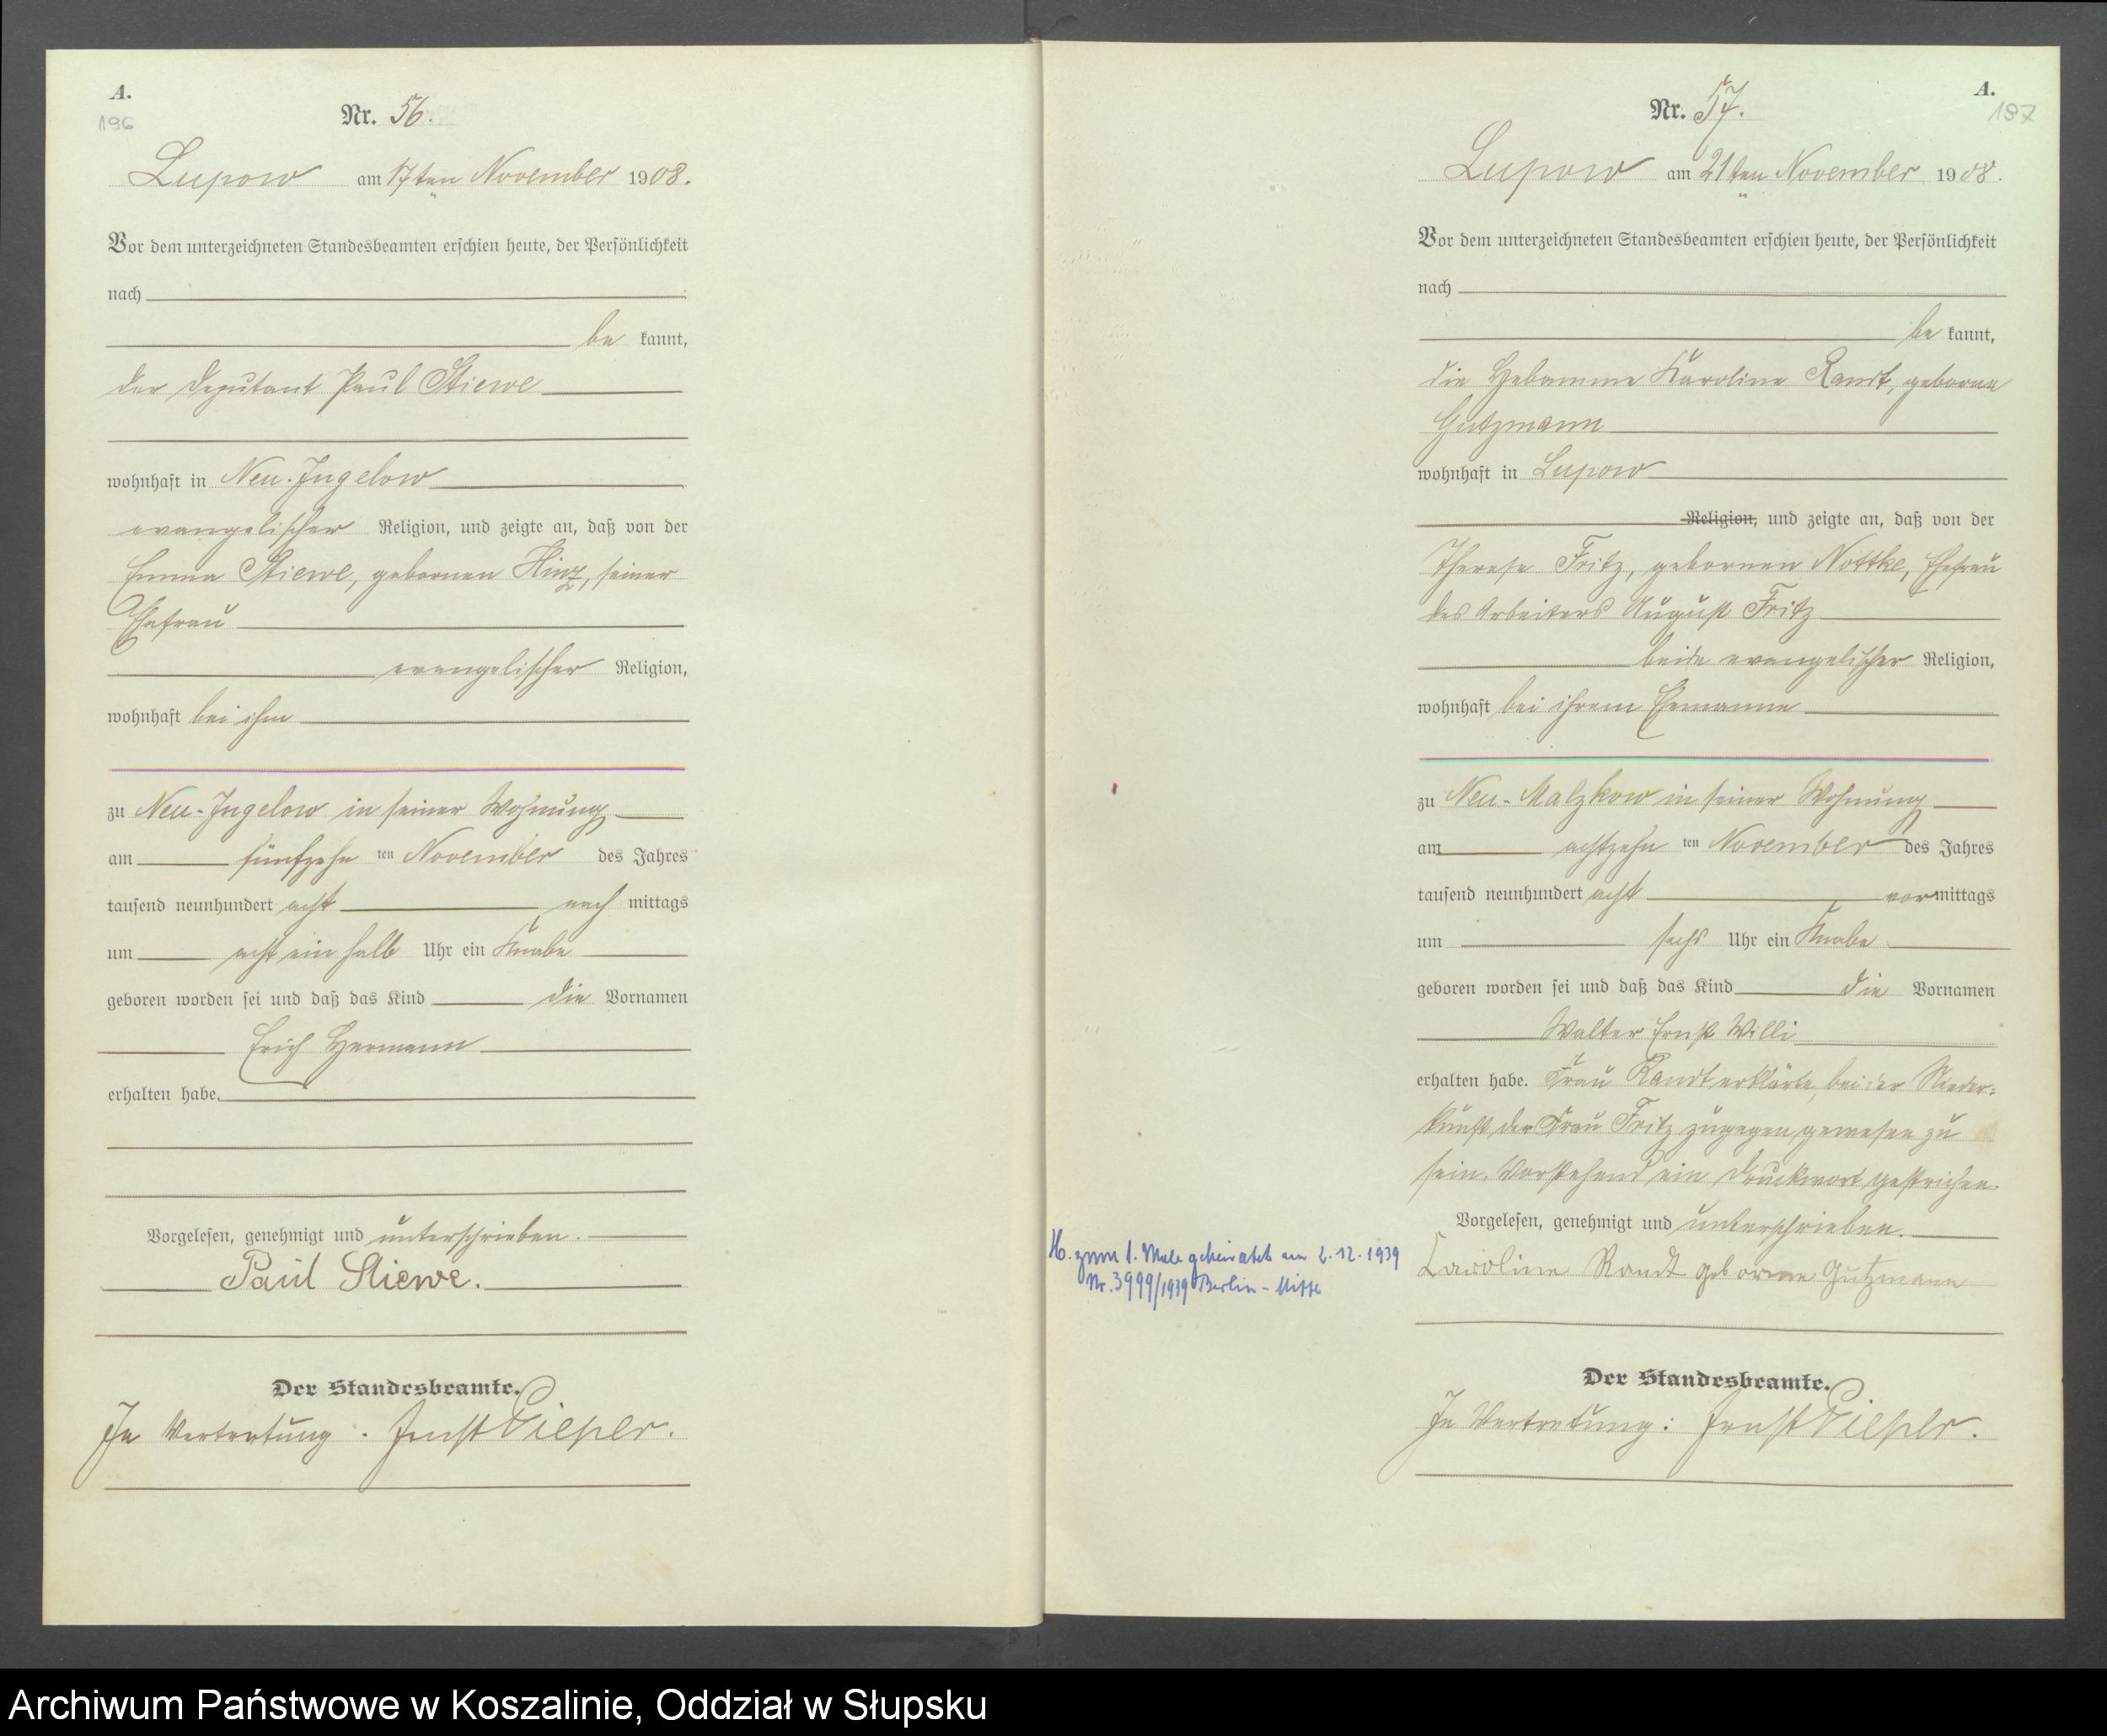 A.
196
Nr. 56.
Lupow am 17ten November 1908.
Vor dem unterzeichneten Standesbeamten erschien heute, der Persönlichkeit
nach
be kannt,
der Deputant Paul Stiewe
wohnhaft in Neu-Jugelow
evangelischer Religion, und zeigte an, daß von der
Emma Stiewe, gebornen Hinz, seiner
Ehefrau
evangelischer Religion,
wohnhaft bei ihm
zu Neu-Jugelow in seiner Wohnung
am fünfzehn ten November des Jahres
tausend neunhundert acht nach mittags
um acht ein halb Uhr ein Knabe
geboren worden sei und daß das Kind die Vornamen
Erich Hermann
erhalten habe.
Vorgelesen, genehmigt und unterschrieben.
Paul Stiewe.
Der Standesbeamte.
In Vertretung: Ernst Pieper.
A.
197
Nr. 57.
Lupow am 21ten November 1908.
Vor dem unterzeichneten Standesbeamten erschien heute, der Persönlichkeit
nach
be kannt,
die Hebamme Karoline Randt, geborne
Gutzmann
wohnhaft in Lupow
Religion, und zeigte an, daß von der
Therese Fritz, gebornen Nottke, Ehefrau
des Arbeiters August Fritz
beide evangelischer Religion,
wohnhaft bei ihrem Ehemanne
zu Neu-Malzkow in seiner Wohnung
am achtzehn ten November des Jahres
tausend neunhundert acht vor mittags
um sechs Uhr ein Knabe
geboren worden sei und daß das Kind die Vornamen
Walter Ernst Willi
erhalten habe. Frau Randt erklärte, bei der Nieder-
kunft der Frau Fritz zugegen gewesen zu
sein. Vorstehend ein Druckwort gestrichen.
Vorgelesen, genehmigt und unterschrieben.
H. zum 1. Male geheiratet am 2.12.1939
Nr. 3999/1939 Berlin-Mitte
Caroline Randt geborene Gutzmann
Der Standesbeamte.
In Vertretung: Ernst Pieper.
Archiwum Państwowe w Koszalinie, Oddział w Słupsku